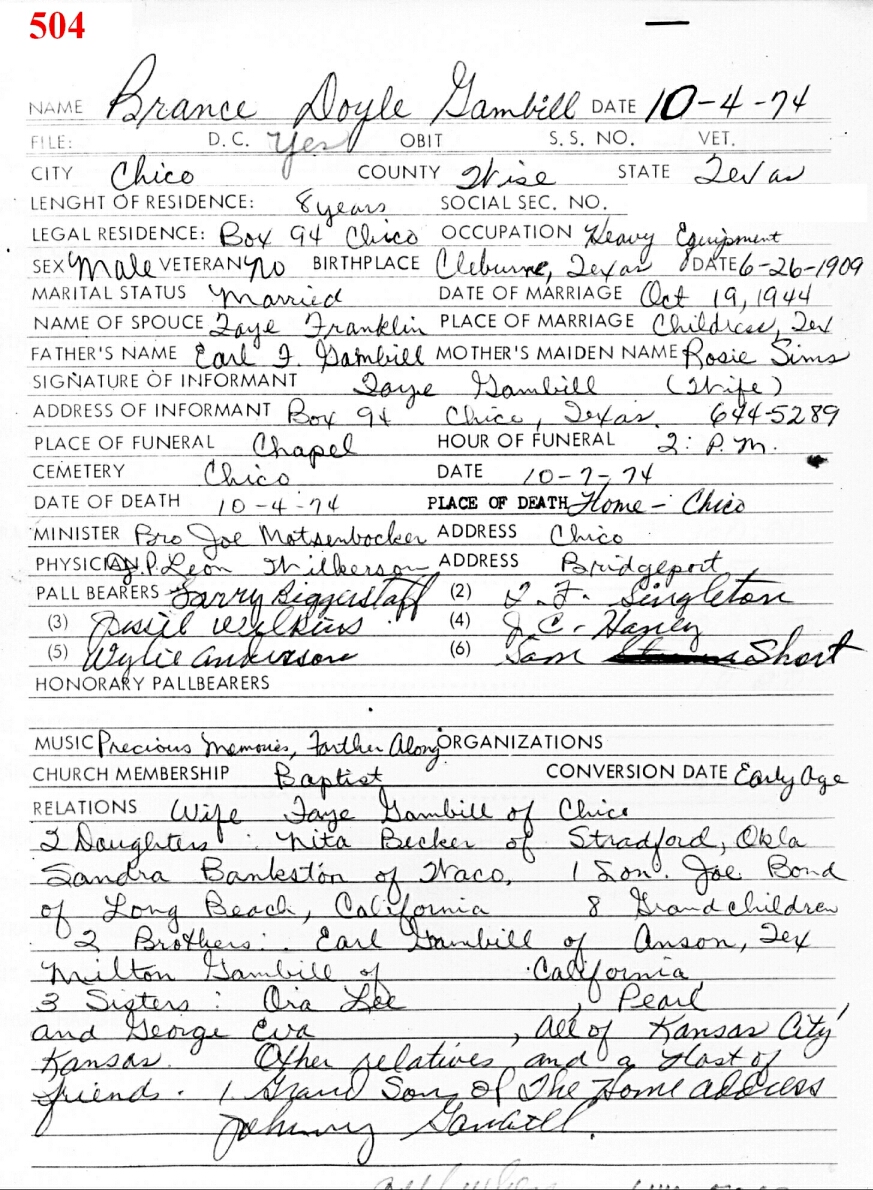 504
NAME Brance Doyle Gambill DATE 10-4-74
FILE: D.C. Yes OBIT S.S. NO. VET.
CITY Chico COUNTY Wise STATE Texas
LENGHT OF RESIDENCE: 8 years SOCIAL SEC. NO.
LEGAL RESIDENCE: Box 94 Chico OCCUPATION Heavy Equipment
SEX Male VETERAN no BIRTHPLACE Cleburne, Texas DATE 6-26-1909
MARITAL STATUS Married DATE OF MARRIAGE Oct 19, 1944
NAME OF SPOUCE Faye Franklin PLACE OF MARRIAGE Childress, Tex
FATHER'S NAME Earl F. Gambill MOTHER'S MAIDEN NAME Rosie Sims
SIGNATURE OF INFORMANT Faye Gambill (Wife)
ADDRESS OF INFORMANT Box 94 Chico, Texas. 644-5289
PLACE OF FUNERAL Chapel HOUR OF FUNERAL 2: P.M.
CEMETERY Chico DATE 10-7-74
DATE OF DEATH 10-4-74 PLACE OF DEATH Home - Chico
MINISTER Bro Joe Matsenbocker ADDRESS Chico
PHYSICIAN J.P. Leon Wilkerson ADDRESS Bridgeport
PALL BEARERS Larry Biggerstaff (2) Singleton
(3) Wilkins (4) J.C. Haney
(5) Wylie Anderson (6) Sam Short
HONORARY PALLBEARERS
MUSIC Precious Memories, Farther Along ORGANIZATIONS
CHURCH MEMBERSHIP Baptist CONVERSION DATE Early Age
RELATIONS Wife Faye Gambill of Chico
2 Daughters: Nita Becker of Stradford, Okla
Sandra Bankston of Waco, 1 Son. Joe Bond
of Long Beach, California 8 Grandchildren
2 Brothers: Earl Gambill of Anson, Tex
Milton Gambill of California
3 Sisters: Ora Lee , Pearl ,
and George Eva , all of Kansas City
Kansas. Other relatives and a Host of
friends. 1 Grand Son of The Home address
Johnny Gambill.